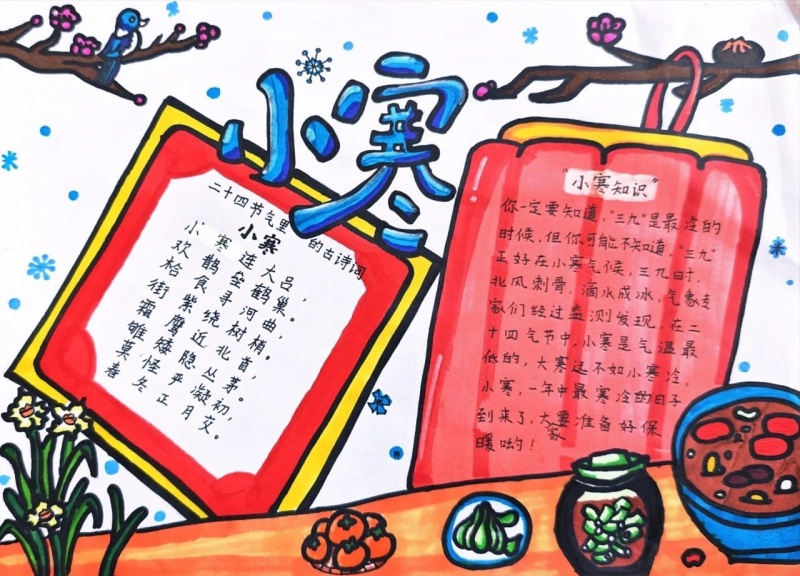 小寒
二十四节气里的古诗词
小寒
小寒连大吕，
欢鹊垒鹤巢。
拾食寻河曲，
街紫绕树梢。
霜鹰近北首，
雊矮隐丛茅。
莫怪严凝初，
春冬正月交。
"小寒知识"
你一定要知道，"三九"是最冷的
时候，但你可能不知道，"三九"
正好在小寒气候，三九时，
北风刺骨，滴水成冰，气象专
家们经过监测发现，在二
十四气节中，小寒是气温最
低的，大寒还不如小寒冷，
小寒，一年中最寒冷的日子
到来了，大家要准备好保
暖哟！